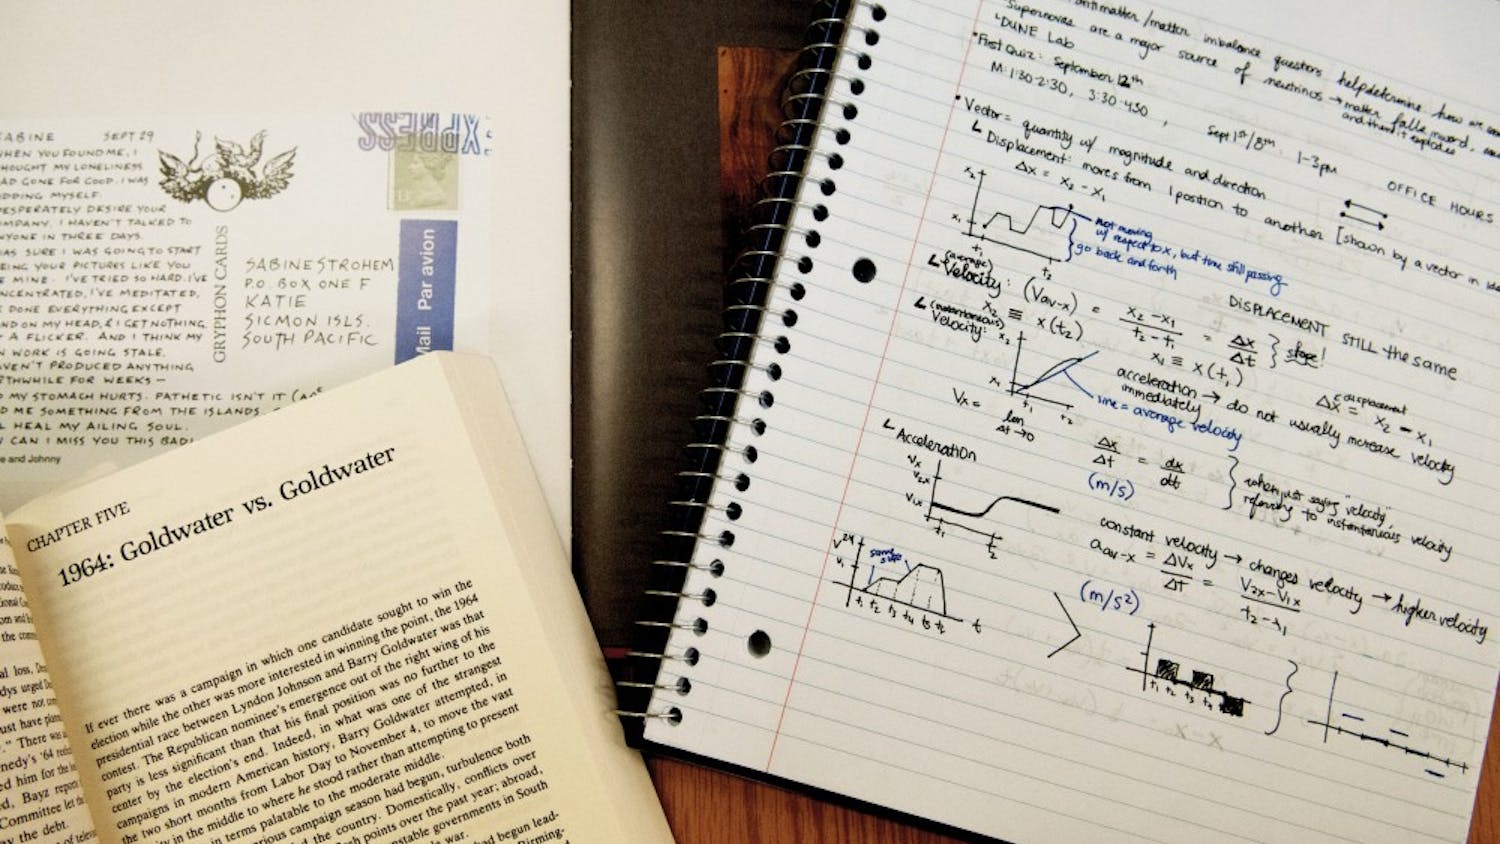 SABINE SEPT 29
WHEN YOU FOUND ME, I
THOUGHT MY LONELINESS
HAD GONE FOR GOOD. I WAS
KIDDING MYSELF.
DESPERATELY DESIRE YOUR
COMPANY. I HAVEN'T TALKED TO
ANYONE IN THREE DAYS
WAS SURE I WAS GOING TO START
SEEING YOUR PICTURES LIKE YOU
MINE. I'VE TRIED SO HARD. I'VE
CONCENTRATED, I'VE MEDITATED,
DONE EVERYTHING EXCEPT
STAND ON MY HEAD, & I GET NOTHING.
A FLICKER. AND I THINK MY
WORK IS GOING STALE.
HAVEN'T PRODUCED ANYTHING
WORTHWHILE FOR WEEKS —
MY STOMACH HURTS. PATHETIC ISN'T IT
ME SOMETHING FROM THE ISLANDS
HEAL MY AILING SOUL.
CAN I MISS YOU THIS BAD
e and Johnny
GRYPHON CARDS
XPRESS
SABINE STROHEM
P.O. BOX ONE F
KATIE
SICMON ISLS.
SOUTH PACIFIC
Mail Par avion
CHAPTER FIVE
1964: Goldwater vs. Goldwater
If ever there was a campaign in which one candidate sought to win the
election while the other was more interested in winning the point, the 1964
presidential race between Lyndon Johnson and Barry Goldwater was that
contest. The Republican nominee's emergence out of the right wing of his
party is less significant than that his final position was no further to the
center by the election's end. Indeed, in what was one of the strangest
campaigns in modern American history, Barry Goldwater attempted, in
the two short months from Labor Day to November 4, to move the vast
in the middle to where he stood rather than attempting to present
in terms palatable to the moderate middle.
campaign season had begun, turbulence both
the country. Domestically, conflicts over
points over the past year; abroad,
governments in South
war.
had begun lead-
Birming-
antimatter/matter imbalance questions help determine how we
Supernovas are a major source of neutrinos → matter falls inward,
and then it explodes
DUNE Lab
First Quiz: September 12th
M: 1:30-2:30, 3:30-4:30, Sept 1st/8th, 1-3pm OFFICE HOURS
Vector = quantity w/ magnitude and direction
Displacement: moves from 1 position to another [shown by a vector in
Δx = x2 - x1
x2
x1
t1
t2
not moving
w/ respect to x, but time still passing
go back and forth
DISPLACEMENT STILL the same
(average)
Velocity: (Vav-x) = x2-x1 / t2-t1 = Δx / Δt } slope!
x2 ≡ x(t2) x1 ≡ x(t1)
Δx = x2 - x1
displacement
(instantaneous)
Velocity:
x2
x1
t1
t2
line = average velocity
acceleration → do not usually increase velocity
immediately
Vx = lim Δt→0 Δx / Δt = dx / dt
(m/s)
when just saying "velocity",
referring to instantaneous velocity
Acceleration
Vx
V2x
V1x
t1
t2
constant velocity → changes velocity → higher velocity
aav-x = ΔVx / ΔT = V2x-V1x / t2-t1
(m/s²)
same slope
t1 t2 t3 t4 t5
t
t1 t2 t3